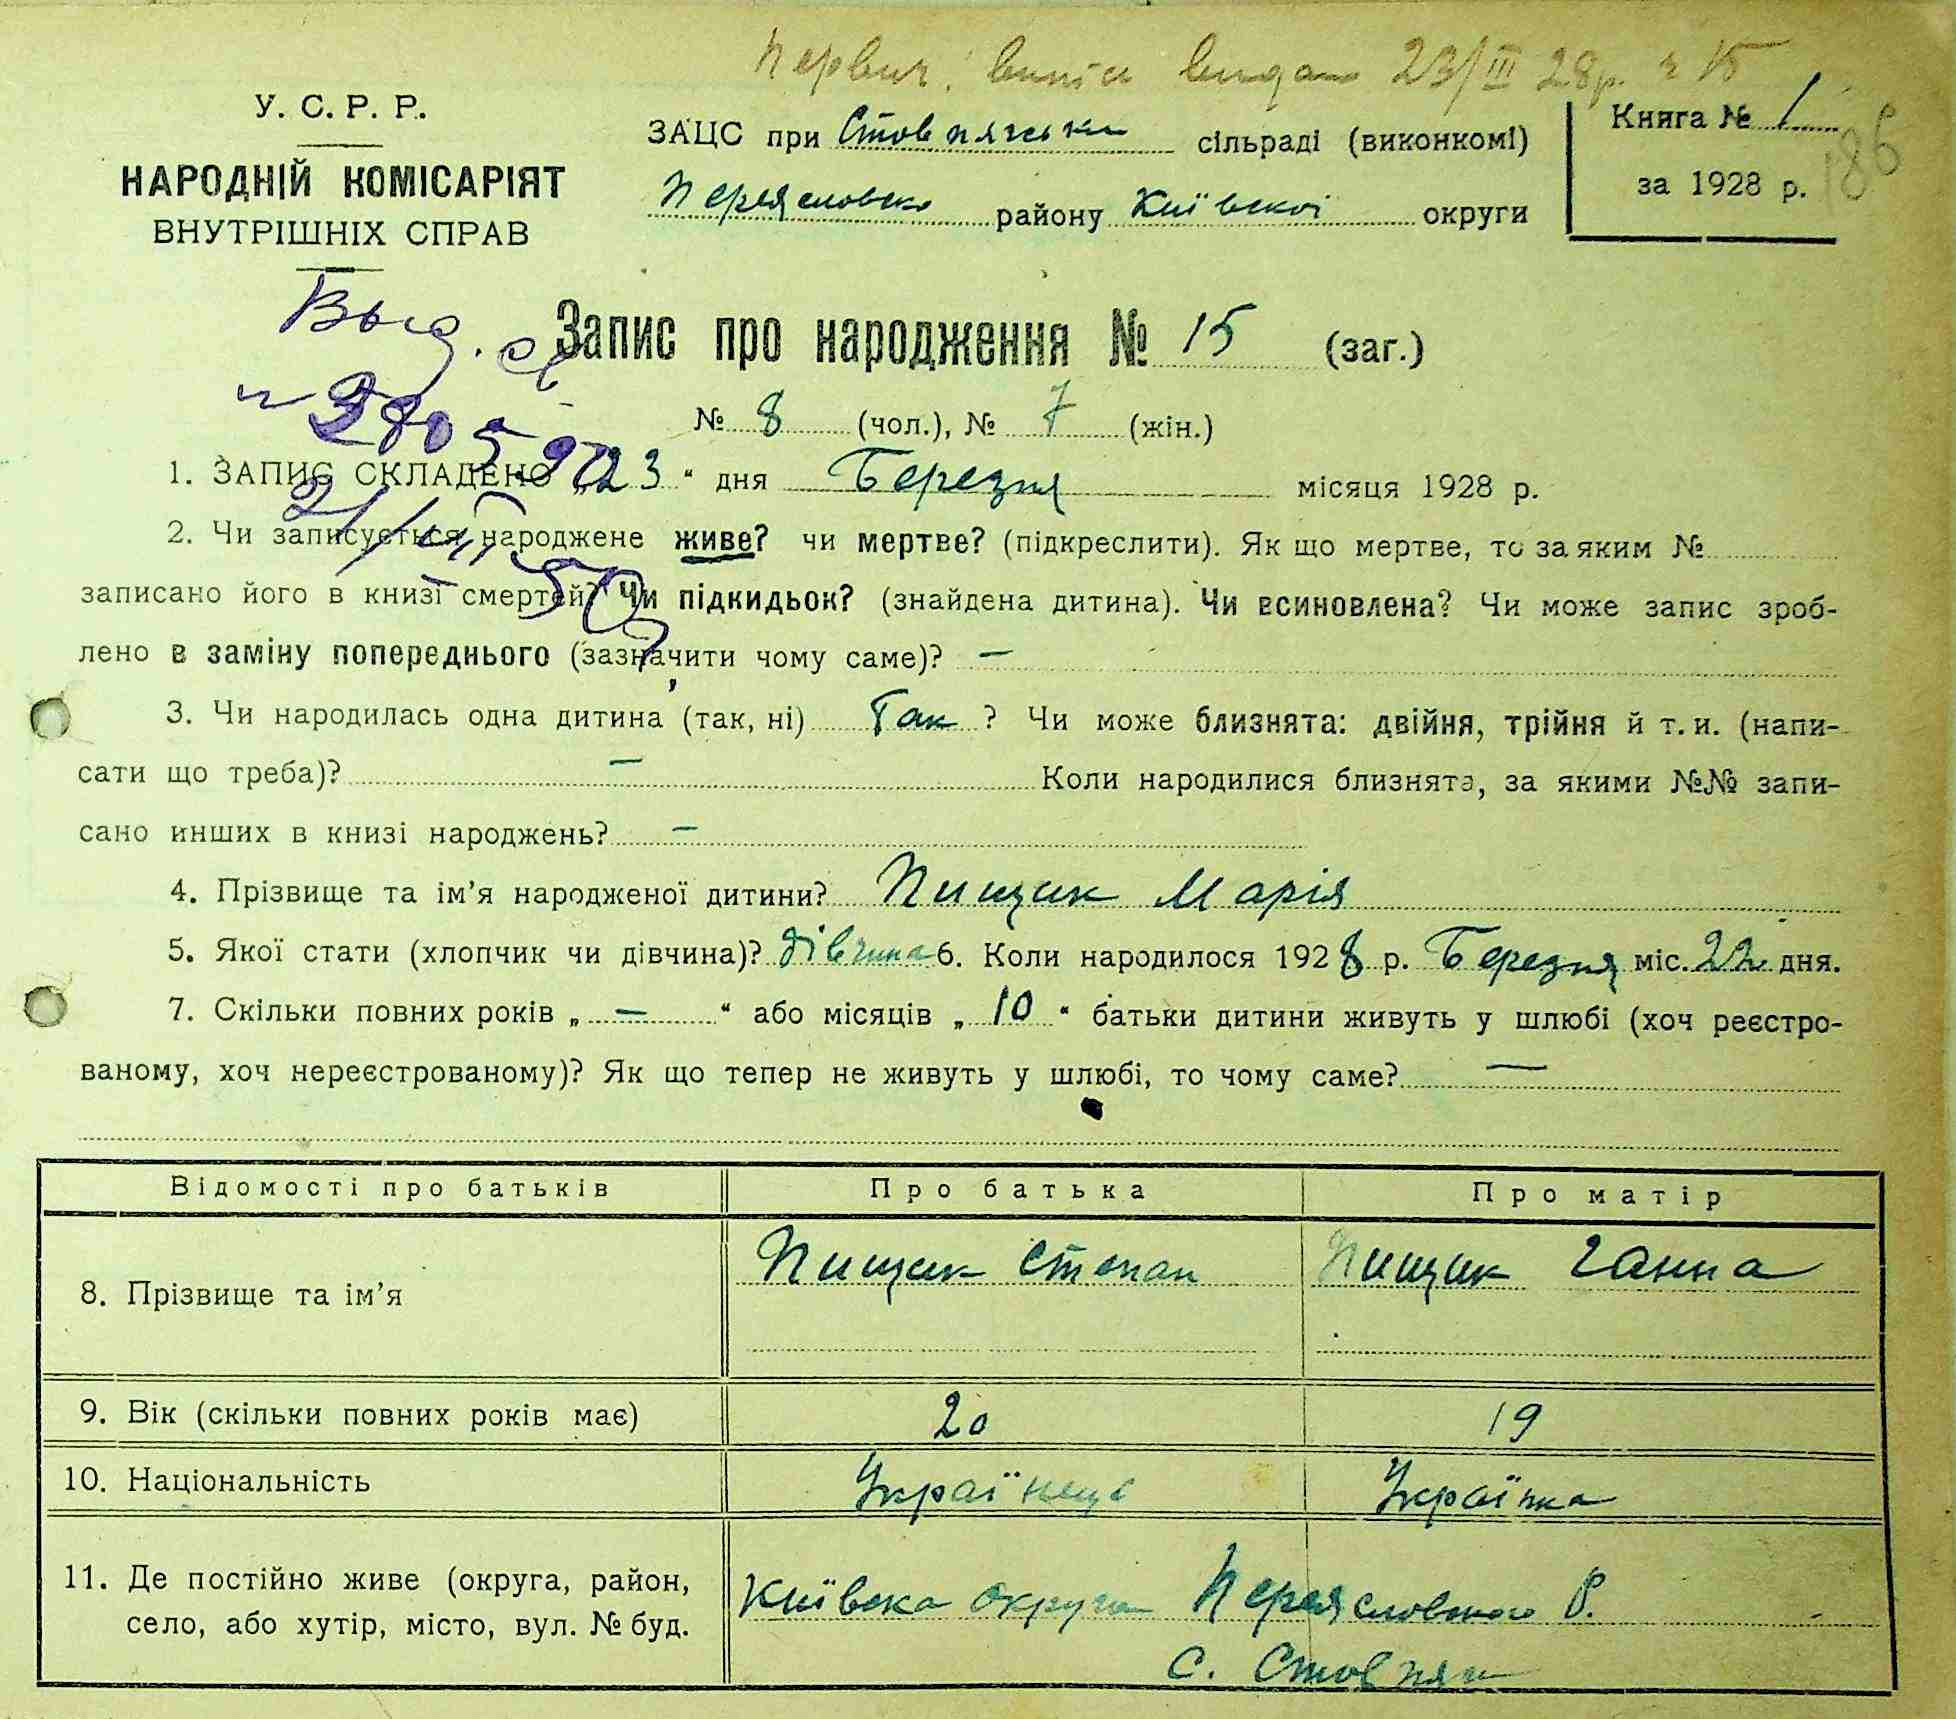 Первич. випис видано 23/III 28р. № 15
У. С. Р. Р.
НАРОДНІЙ КОМІСАРІЯТ
ВНУТРІШНІХ СПРАВ
ЗАЦС при Стовпягськи сільраді (виконкомі)
Переяславсько району Київскоі округи
Книга № 1
за 1928 р.
186
Выд.
Запис про народження № 15 (заг.)
№ 8 (чол.), № 7 (жін.)
1. ЗАПИС СКЛАДЕНО „23“ дня Березня місяця 1928 р.
2. Чи записується народжене живе? чи мертве? (підкреслити). Як що мертве, то за яким №
записано його в книзі смертей? Чи підкидьок? (знайдена дитина). Чи всиновлена? Чи може запис зроб-
лено в заміну попереднього (зазначити чому саме)? —
3. Чи народилась одна дитина (так, ні) Так ? Чи може близнята: двійня, трійня й т. и. (напи-
сати що треба)? — Коли народилися близнята, за якими №№ запи-
сано инших в книзі народжень? —
4. Прізвище та ім’я народженої дитини? Пищик Марія
5. Якої стати (хлопчик чи дівчина)? дівчина 6. Коли народилося 1928 р. Березня міс. 22 дня.
7. Скільки повних років „ — “ або місяців „ 10 “ батьки дитини живуть у шлюбі (хоч реєстро-
ваному, хоч нереєстрованому)? Як що тепер не живуть у шлюбі, то чому саме? —
Відомості про батьків Про батька Про матір
8. Прізвище та ім’я Пищик Степан Пищик Ганна
9. Вік (скільки повних років має) 20 19
10. Національність Українець Українка
11. Де постійно живе (округа, район,
село, або хутір, місто, вул. № буд.
Київска округа Переясловського Р.
с. Стовпяги